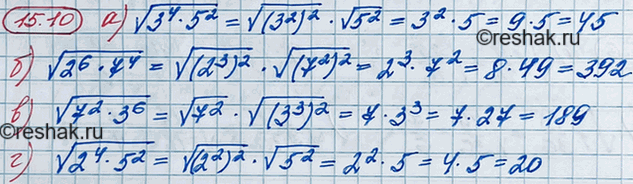 15.10 а) √(3⁴·5²) = √((3²)²)·√(5²) = 3²·5 = 9·5 = 45
б) √(2⁶·7⁴) = √((2³)²)·√((7²)²) = 2³·7² = 8·49 = 392
в) √(7²·3⁶) = √(7²)·√((3³)²) = 7·3³ = 7·27 = 189
г) √(2⁴·5²) = √((2²)²)·√(5²) = 2²·5 = 4·5 = 20